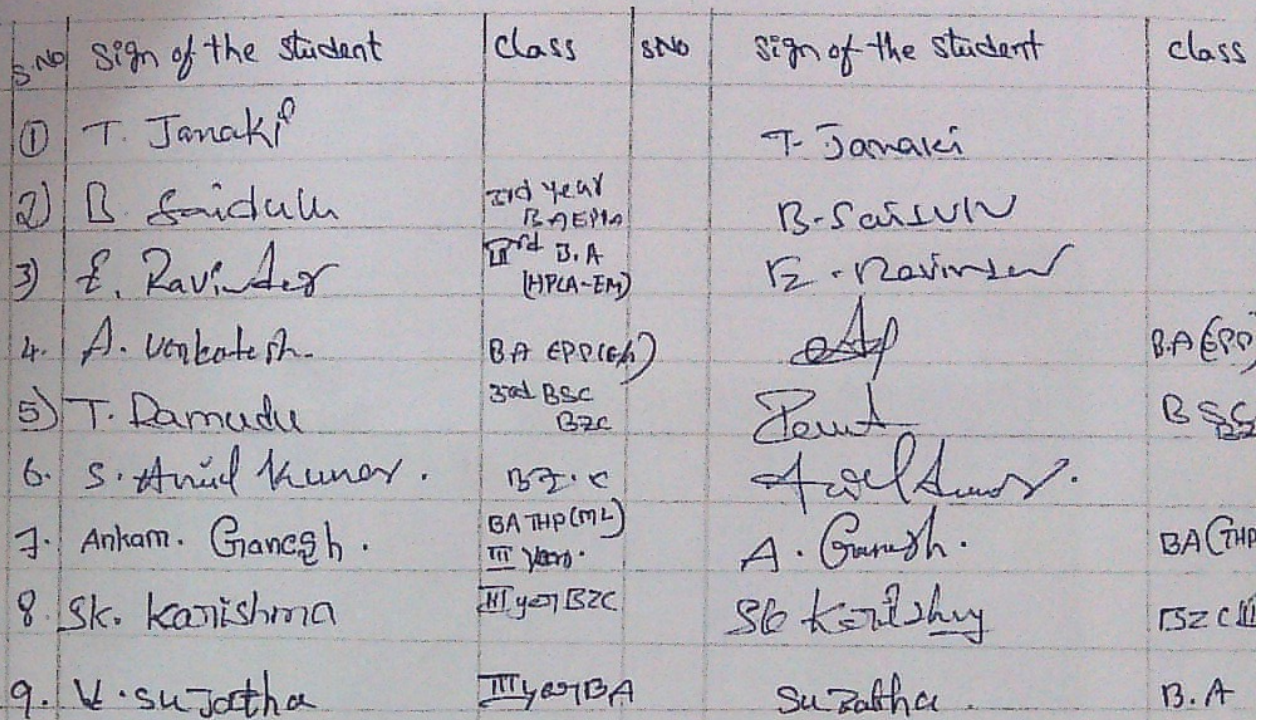 S.No Sign of the student class SNO Sign of the student class
① T. Janaki T. Janaki
2) B. Saidulu 3rd year BAEPM B. Saidulu
3) E. Ravinder IIIrd B.A (HPCA-EM) E. Ravinder
4. A. Venkatesh. BA EPP(EM) BA(EPP)
5) T. Ramudu 3rd BSC BZC BSC
6. S. Anil Kumar. BZ.C Anil Kumar.
7. Ankam. Ganesh. BA THP(ML) III Year. A. Ganesh. BA(THP
8. Sk. Karishma III year BZC Sk Karishma BZC III
9. V. Sujatha III year BA Suzatha. B.A